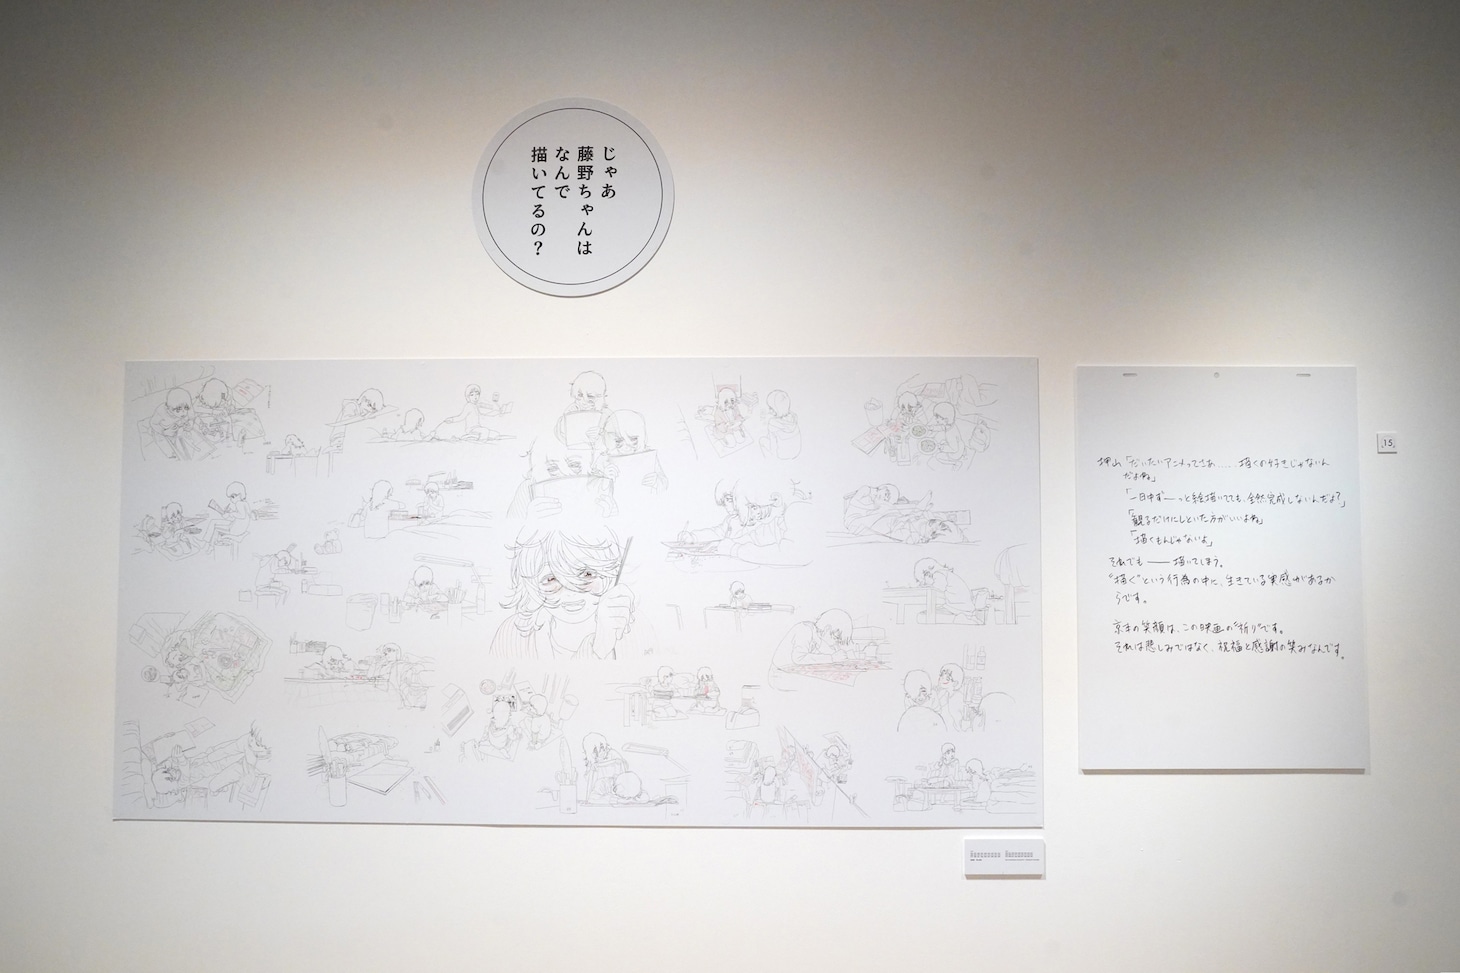 じゃあ
藤野ちゃんは
なんで
描いてるの？
押山「だいたいアニメってさあ……描くの好きじゃないん
だよね」
「一日中ず──っと絵描いてても、全然完成しないんだよ？」
「観るだけにしといた方がいいよね」
「描くもんじゃないよ」
それでも──描いてしまう。
“描く”という行為の中に、生きている実感があるか
らです。
京本の笑顔は、この映画の“祈り”です。
それは悲しみではなく、祝福と感謝の笑みなんです。
15